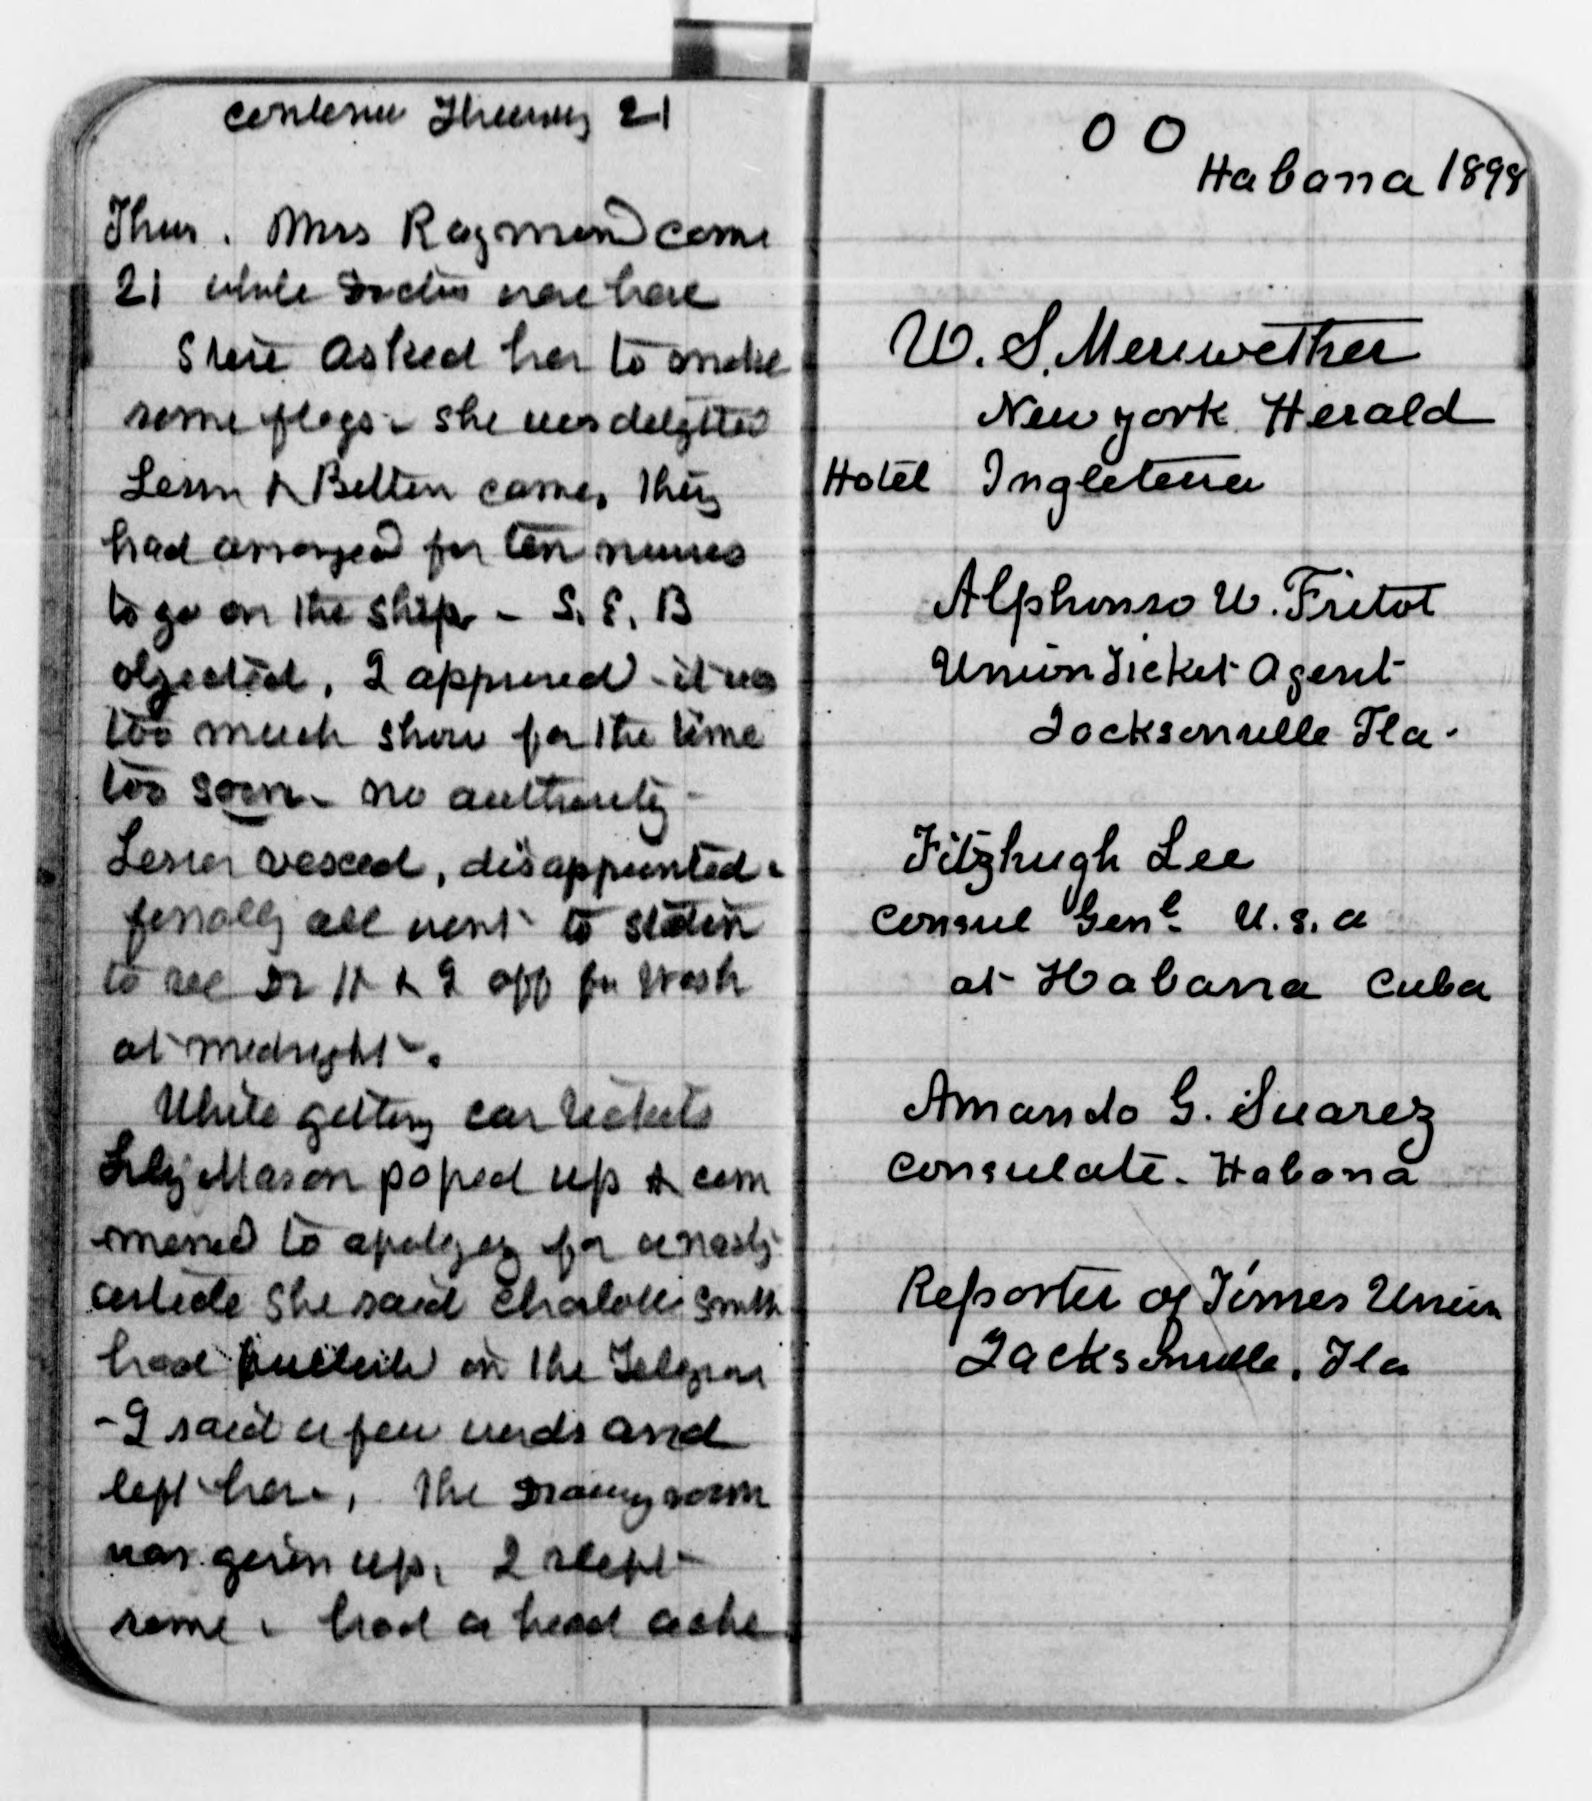 continue Thursday 21
Thurs. Mrs Raymond came
21 while Doctors were here
Steve asked her to make
some flags - she was delighted
Lesser & Bettina came, they
had arranged for ten nurses
to go on the ship - S. E. B
objected, I approved - it was
too much show for the time
too soon - no authority -
Lesser vexed, disappointed -
finally all went to station
to see Dr H & I off for Wash
at midnight -.
While getting car tickets
Mason poped up & com
menced to apologize for a nasty
article she said Charlotte Smith
had in the Telegram
- I said a few words and
left her, the Drawing room
was given up, I slept
some - had a head ache
O O
Habana 1898
W. S. Meriwether
New York Herald
Hotel Ingleterra
Alphonso W. Fritot
Union Ticket Agent
Jacksonville Fla -
Fitzhugh Lee
Consul Genl U. S. A
at Habana Cuba
Amando G. Suarez
Consulate - Habana
Reporter of Times Union
Jacksonville, Fla